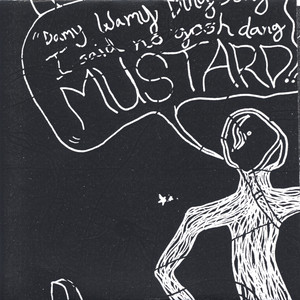 "Damy Wamy
I said no gosh dang
MUSTARD!!